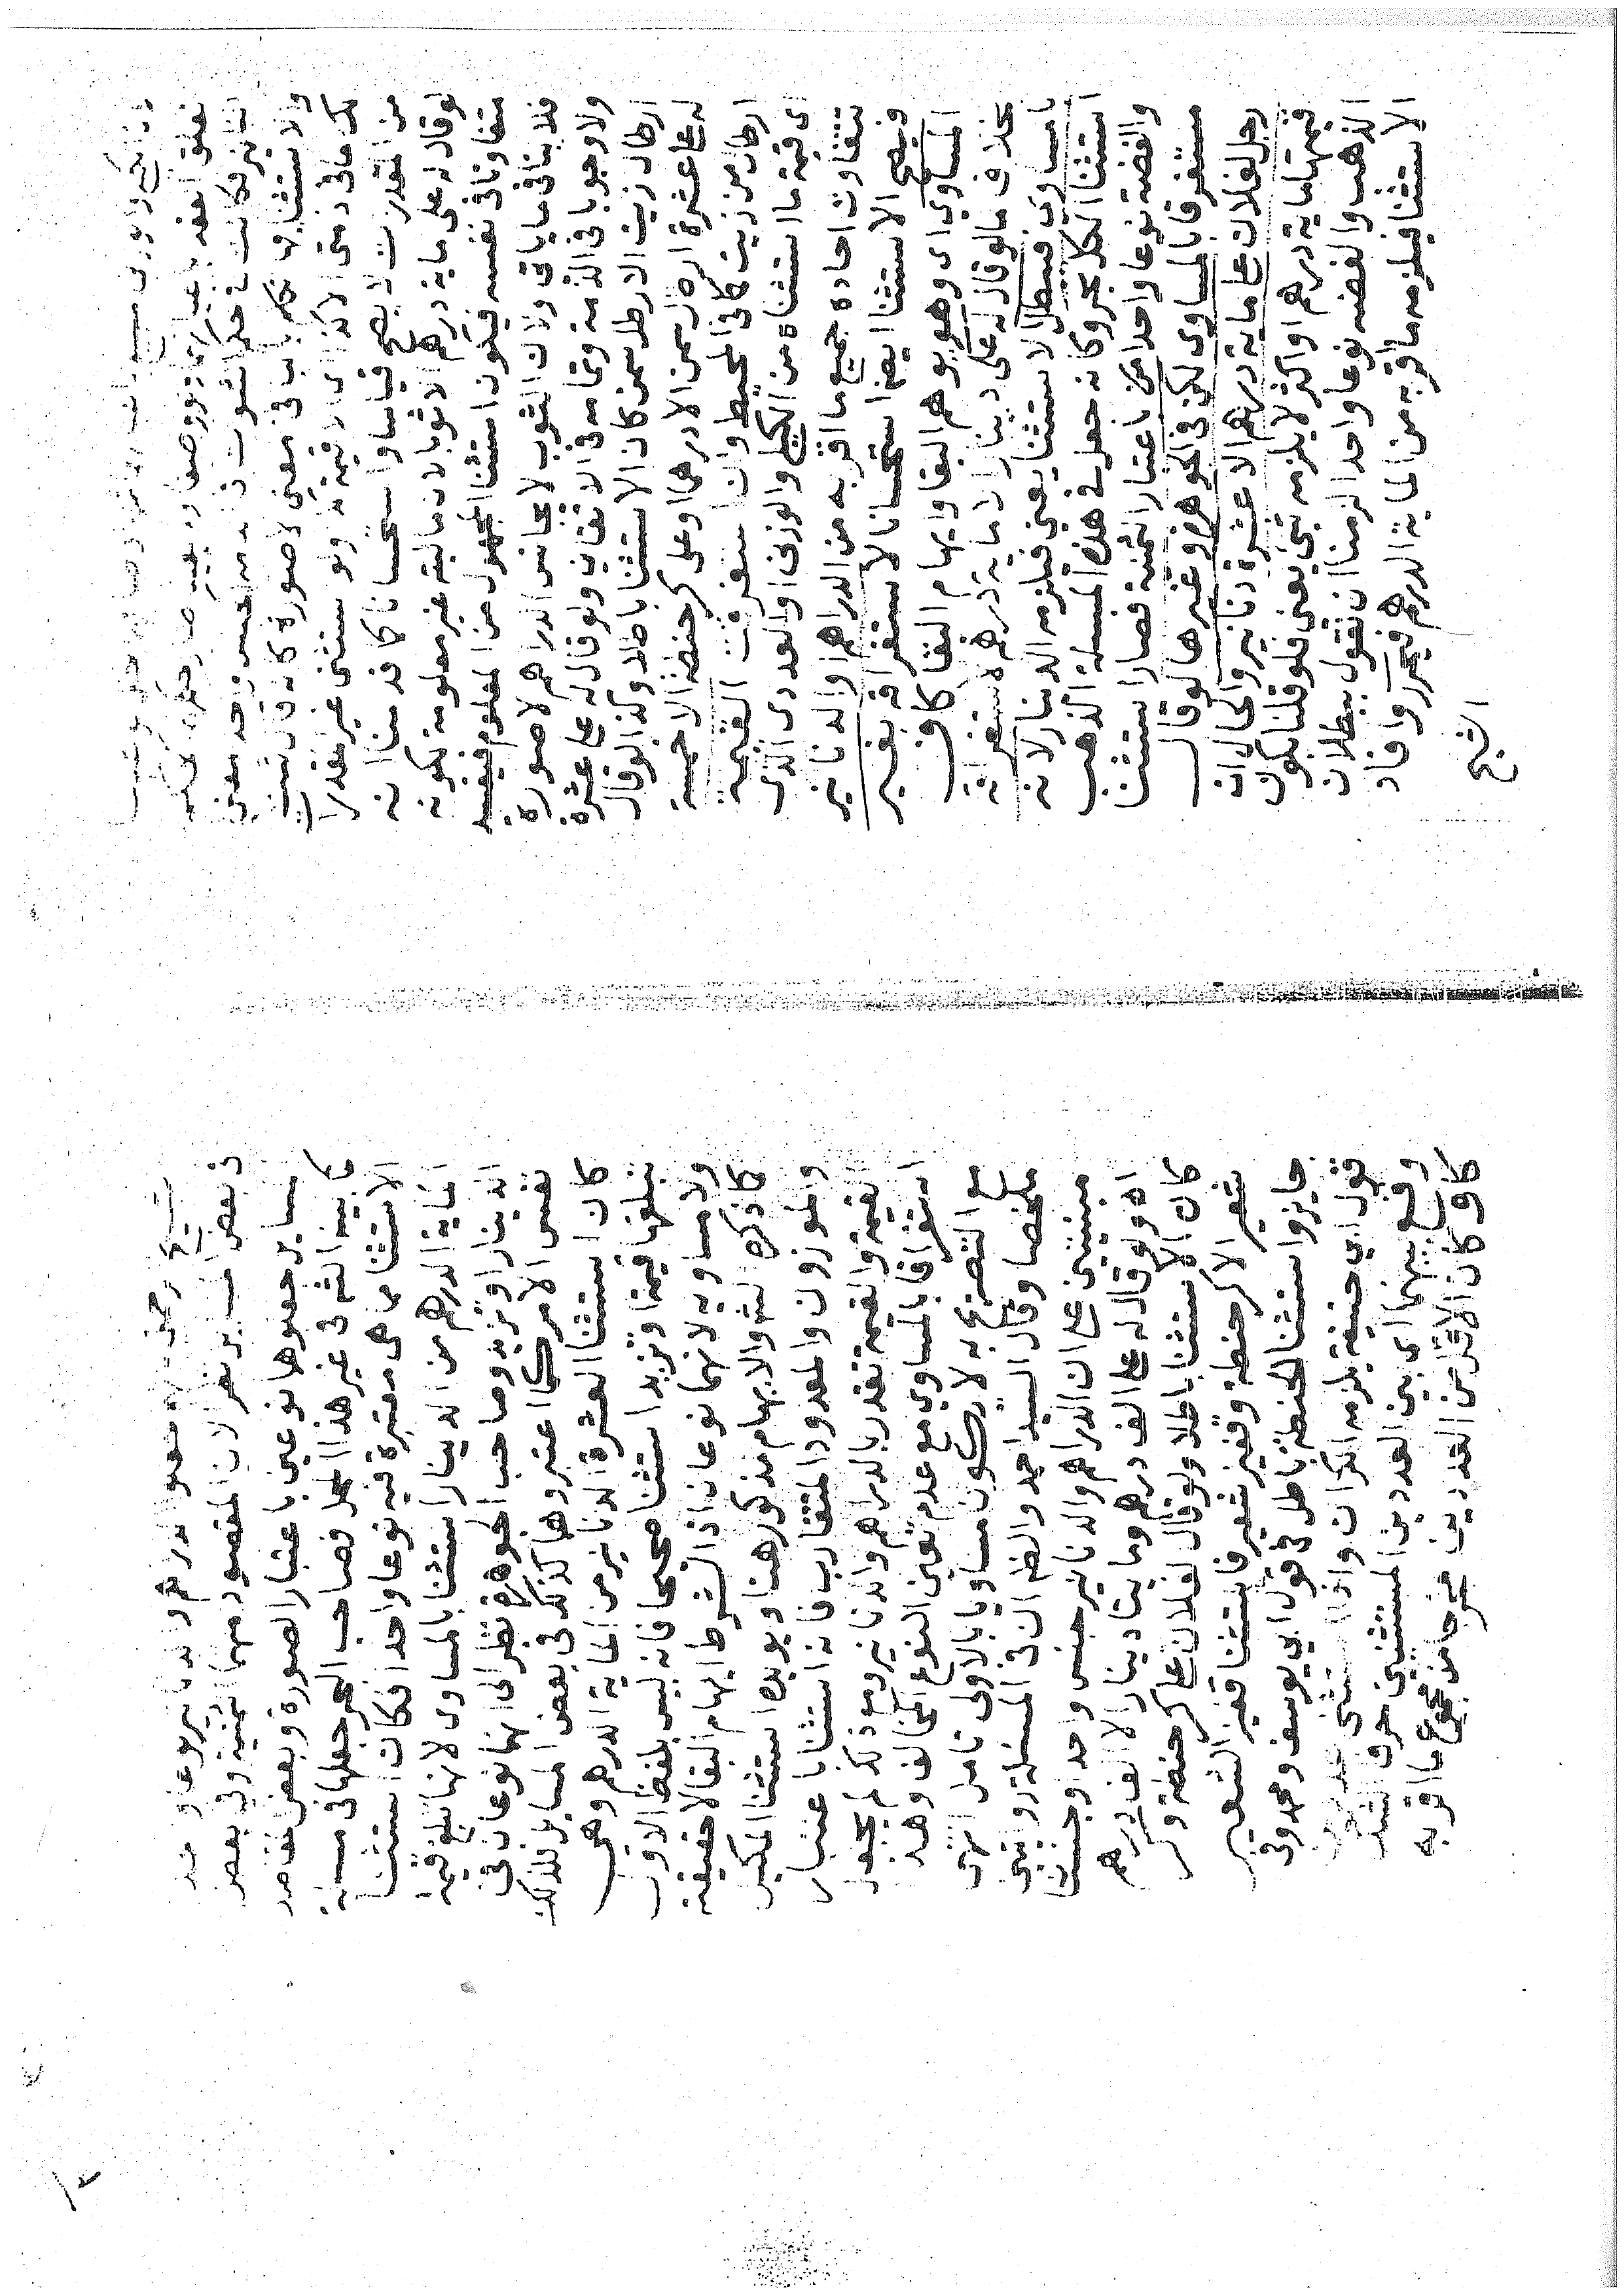 تعلق العقد
الدنانير فكانت في حكم الثبوت في الذمة كجنس واحد معنى
والاستثنا تكلم بالباقي معنى لا صورة كانه قال ثبت
لك مالي ذمتي الا كذا اي لا قيمة كذا ولو استثنى غير المقدر
من المقدرات لا يصح قياسا واستحسانا كما قدمنا انه
لو قال له علي ماية درهم الا ثوبا لان ماليته غير معلومة لكونه
متفاوتا في نفسه فيكون استثنا المجهول من المعلوم فيفسد
فلا ينافي ما ياتي ولان الثوب لا يجانس الدراهم لا صورة
ولا وجوبا في الذمة وتمامه في الاتقاني ولو قال له علي عشرة
ارطال زيت الا رطل سمن كان الاستثنا باطلا وكذا لو قال
له علي عشرة ارطال سمن الا درهما او علي كر حنطة الا خمسة
ارطال من زيت كما في المحيط وان استغرقت القيمة
اي قيمة ما استثناه من الكيلي والوزني او العددي الذي
تتفاوت احاده جميع ما اقر به من الدراهم او الدنانير
ويصح الاستثنا ايضا استحسانا لاستغراقه بغير
المساوي اي وهو يوهم البقا وايهام البقا كاف
بخلاف ما لو قال له علي دينار الا ماية درهم لاستغراقه
بالمساوي فيبطل الاستثنا يعني فيلزمه الدينار لانه
استثنا الكل بحر وكانه جعل في هذه المسئلة الذهب
والفضة نوعا واحدا من باعتبار الثمنية فصار استثنا
مستغرقا بالمساوي لكن في الجوهرة وغيرها لو قال
رجل لفلان علي ماية درهم الا عشرة دنانير والحال ان
قيمتها ماية درهم او اكثر لا يلزمه شي يعني فلو قلنا بكون
الذهب والفضة نوعا واحدا لزمنا ان نقول ببطلان
الاستثنا فيلزمه ما اقر به من الماية الدرهم فيحرر وافاد
الشيخ
الدراهم والدنانير نوعا واحدا
في بعض المسايل نظرا لان المقصود منهما الثمنية وفي بعض
المسايل جعلوها نوعين باعتبار الصورة وبعض المقاصد
كما بينه الشم في غير هذا المحل فصاحب البحر جعلها في مسئلة
الاستثنا مما هي معتبرة فيه نوعا واحدا فكان استثنا
الماية الدرهم من الدينار استثنا بالمساوي لانها تبلغ قيمة
الدينار او تزيد وصاحب الجوهرة نظر الى انهما نوعان في
نفس الامر كما اعتبروها كذلك في بعض المسايل فلذلك
كان استثنا العشرة الدنانير من الماية الدرهم وهي
تبلغها قيمة او تزيد استثنا صحيحا فانه ليس بلفظ الاول
ولا مساويه لانهما نوعان اذ الشرط ايهام البقا لا حقيقة
كما ذكره الشم والايهام مذكور هنا ويويده استثنا المكيل
والموزون والمعدود المتقارب فانه استثنا باعتبار
القيمة والقيمة تقدر بالدراهم والدنانير ومع ذلك لم يجعلوا
استغراقا بالمساوي مع عدم تعين النوع المخالف وهذا
مع التصريح به لا يكون مساويا بالاولى تامل انتهى
ملخصا وقال السيد احمد والظم ان في المسئلة روايتين
مبنيتين على ان الدراهم والدنانير جنس واحد او جنسان
اه ولو قال له علي الف درهم ومايتا دينار الا الف درهم
كان الاستثنا باطلا ولو قال لفلان علي كر حنطة وكر
شعير الا كر حنطة وقفيز شعير فاستثنا قفيز الشعير
جايز واستثنا الحنطة باطل في قول ابي يوسف ومحمد وفي
قول ابي حنيفة يلزمه الكران واذا استثنى عددين
وقع بينهما اي بين العددين المستثنيين حرف الشك
كان الاقل من العددين مخرجا من مجموع ما اقر به